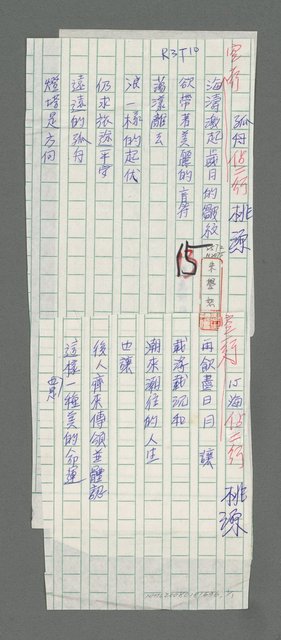 R3T10
空行
孤舟 佔二行 桃源
海濤激起歲日的皺紋
欲帶著美麗的音符
蕩漾離去
浪一樣的起伏
仍求張弦千守
遠遠的孤舟
燈塔是方向
15
朱學恕
空行
海 佔二行 桃源
再飲盡日月 讓
載浮載沉和
潮來潮往的人生
也讓
後人齊來傳頌並體認
這樣一種美的命運